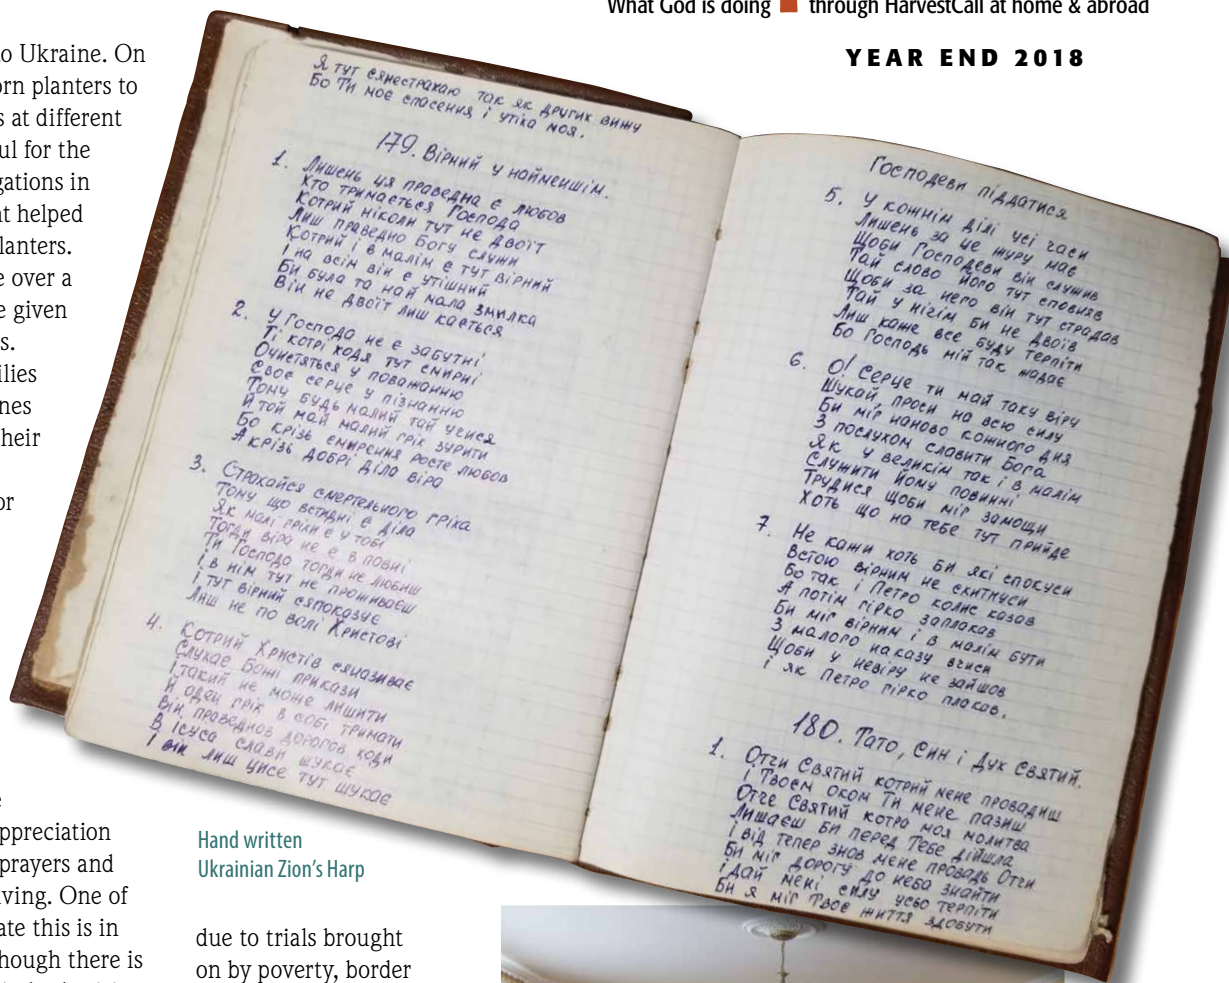 What God is doing ■ through HarvestCall at home & abroad
YEAR END 2018
o Ukraine. On
orn planters to
s at different
ul for the
gations in
at helped
lanters.
e over a
e given
s.
ilies
nes
heir
or
ppreciation
prayers and
ving. One of
ate this is in
hough there is
Я тут сянестрахаю так як других вижу
Бо Ти моє спасення і утіка моя.
179. Вірний у найменшім.
1. Лишень ця праведна є любов
Хто тримається Господа
Котрий ніколи тут не двоїт
Лиш праведно Богу служи
Котрий і в малім є тут вірний
І на всім він є утішний
Би була та най мала змилка
Він не двоїт лиш кається
2. У Господа не є забутні
Ті котрі ходя тут смирні
Очистяться у поважанню
Своє серце у пізнанню
Тому будь малий тай учися
Й той май малий гріх зурити
Бо крізь смирення росте любов
А крізь добрі діла віра
3. Страхайся смертельного гріха
Тому що встидні є діла
Як малі гріхи є у тобі
Тогди віра не є в повні
Ти Господа тогди не любиш
І в нім тут не проживаєш
І тут вірний сяпоказує
Лиш не по волі Христові
4. Котрий Христів сяназиває
Слухає Божі прикази
І такий не може лишити
Й оден гріх в собі тримати
Він праведнов дорогов ходи
В Ісуса слави шукає
І він лиш цисе тут шукає
Господеви піддатися
5. У кожнім ділі усі часи
Лишень за це журу має
Щоби Господеви він служив
Тай слово його тут сповняв
Щоби за него він тут страдав
Тай у нічім би не двоїв
Лиш каже все буду терпіти
Бо Господь мій так жадає
6. О! Серце ти май таку віру
Шукай, проси на всю силу
Би міг наново кожного дня
З послухом славити Бога
Як у великім так і в малім
Служити йому повинні
Трудися щоби міг замощи
Хоть що на тебе тут прийде
7. Не кажи хоть би які спокуси
Встою вірним не схитнуси
Бо так і Петро колис казав
А потім гірко заплакав
Би міг вірним і в малім бути
З малого наказу вчиси
Щоби у невіру не зайшов
І як Петро гірко плакав.
180. Тато, Син і Дух Святий.
1. Отчи Святий котрий мене провадиш
І Твоєм оком Ти мене пазиш
Отче Святий котра моя молитва
Лишаєш би перед Тебе дійшла
І від тепер знов мене провадь Отчи
Би міг дорогу до неба знайти
І дай мені силу усьо терпіти
Би я міг Твоє життя здобути
Hand written
Ukrainian Zion's Harp
due to trials brought
on by poverty, border